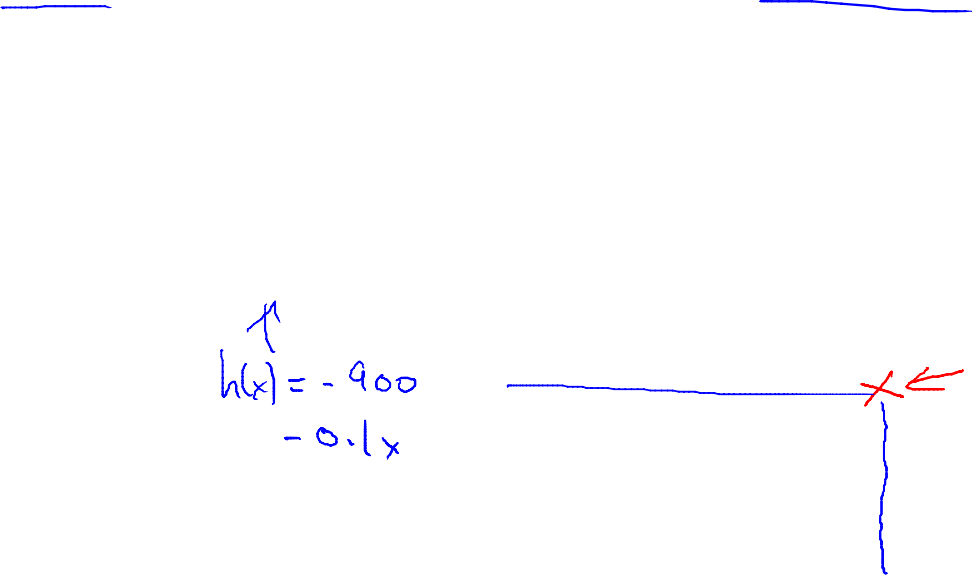 h(x) = - 900
- 0.1x